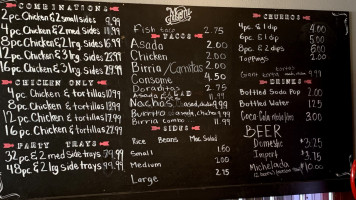 COMBINATIONS
2pc Chicken & 2 small sides 8.99
4pc Chicken & 2 med sides 11.99
8pc Chicken & 2 lrg. sides 16.99
12pc Chicken & 2 lrg. sides 23.99
16pc Chicken & 3 lrg. sides 29.99
CHICKEN ONLY
4pc Chicken + tortillas 10.99
8pc Chicken + tortillas 13.99
12pc Chicken + tortillas 17.99
16pc Chicken + tortillas 22.99
PARTY TRAYS
32pc & 2 med side trays 79.99
48pc & 2 lrg side trays 99.99
Menu
Fish taco 2.75
TACOS
Asada 2.00
Chicken 2.00
Birria/Carnitas 2.00
Consome 4.50
Doraditas 2.50
Nachos
Burrito
Birria Combo 11.99
SIDES
Rice Beans Mac Salad
Small 1.50
Medium 2.00
Large 2.75
CHURROS
4pc & 1 dip 4.00
6pc & 1 dip 5.00
8pc & 2 dips 6.00
Toppings 2.00
DRINKS
Bottled Soda Pop 2.00
Bottled Water 1.25
Coca-Cola 3.00
BEER
Domestic $3.25
Import $3.75
Michelada $10.00